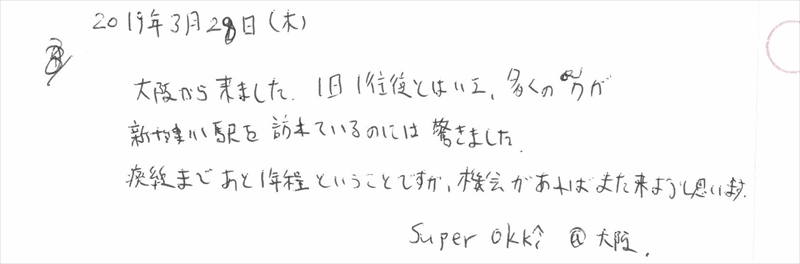 2019年3月28日(木)
大阪から来ました。1日1往復とはいえ、多くの方が
新十津川駅を訪れているのには驚きました。
廃線まであと1年程ということですが、機会があればまた来ようと思います。
Super OKKI @大阪.